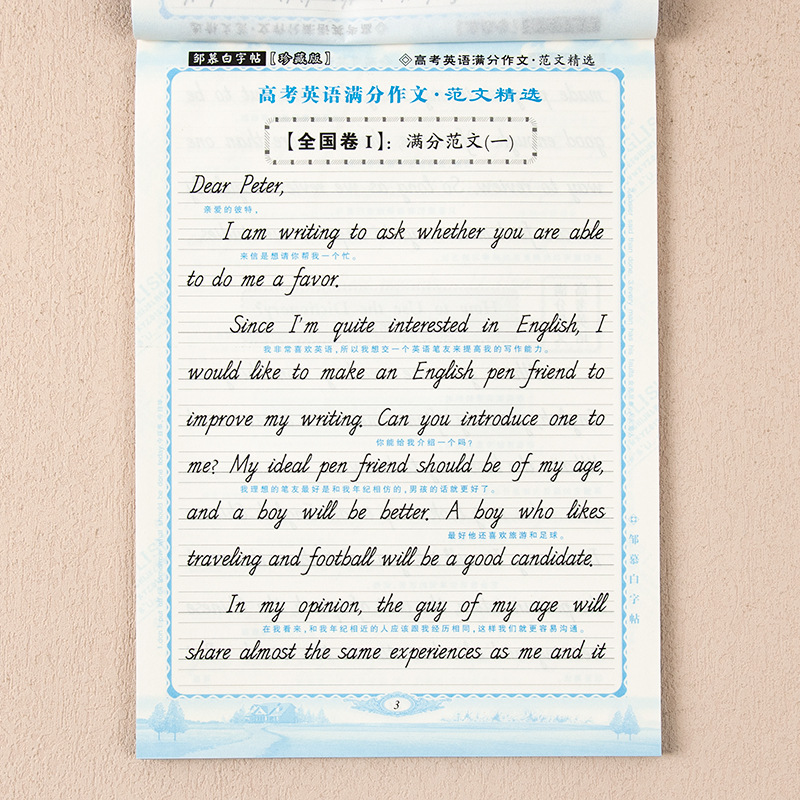 邹慕白字帖【珍藏版】 ◇高考英语满分作文·范文精选
高考英语满分作文·范文精选
【全国卷Ⅰ】：满分范文(一)
Dear Peter,
亲爱的彼特，
I am writing to ask whether you are able
来信是想请你帮我一个忙。
to do me a favor.
Since I'm quite interested in English, I
我非常喜欢英语，所以我想交一个英语笔友来提高我的写作能力。
would like to make an English pen friend to
improve my writing. Can you introduce one to
你能给我介绍一个吗？
me? My ideal pen friend should be of my age,
我理想的笔友最好是和我年纪相仿的，男孩的话就更好了。
and a boy will be better. A boy who likes
最好他还喜欢旅游和足球。
traveling and football will be a good candidate.
In my opinion, the guy of my age will
在我看来，和我年纪相近的人应该跟我经历相同，这样我们就更容易沟通。
share almost the same experiences as me and it
邹慕白字帖
3